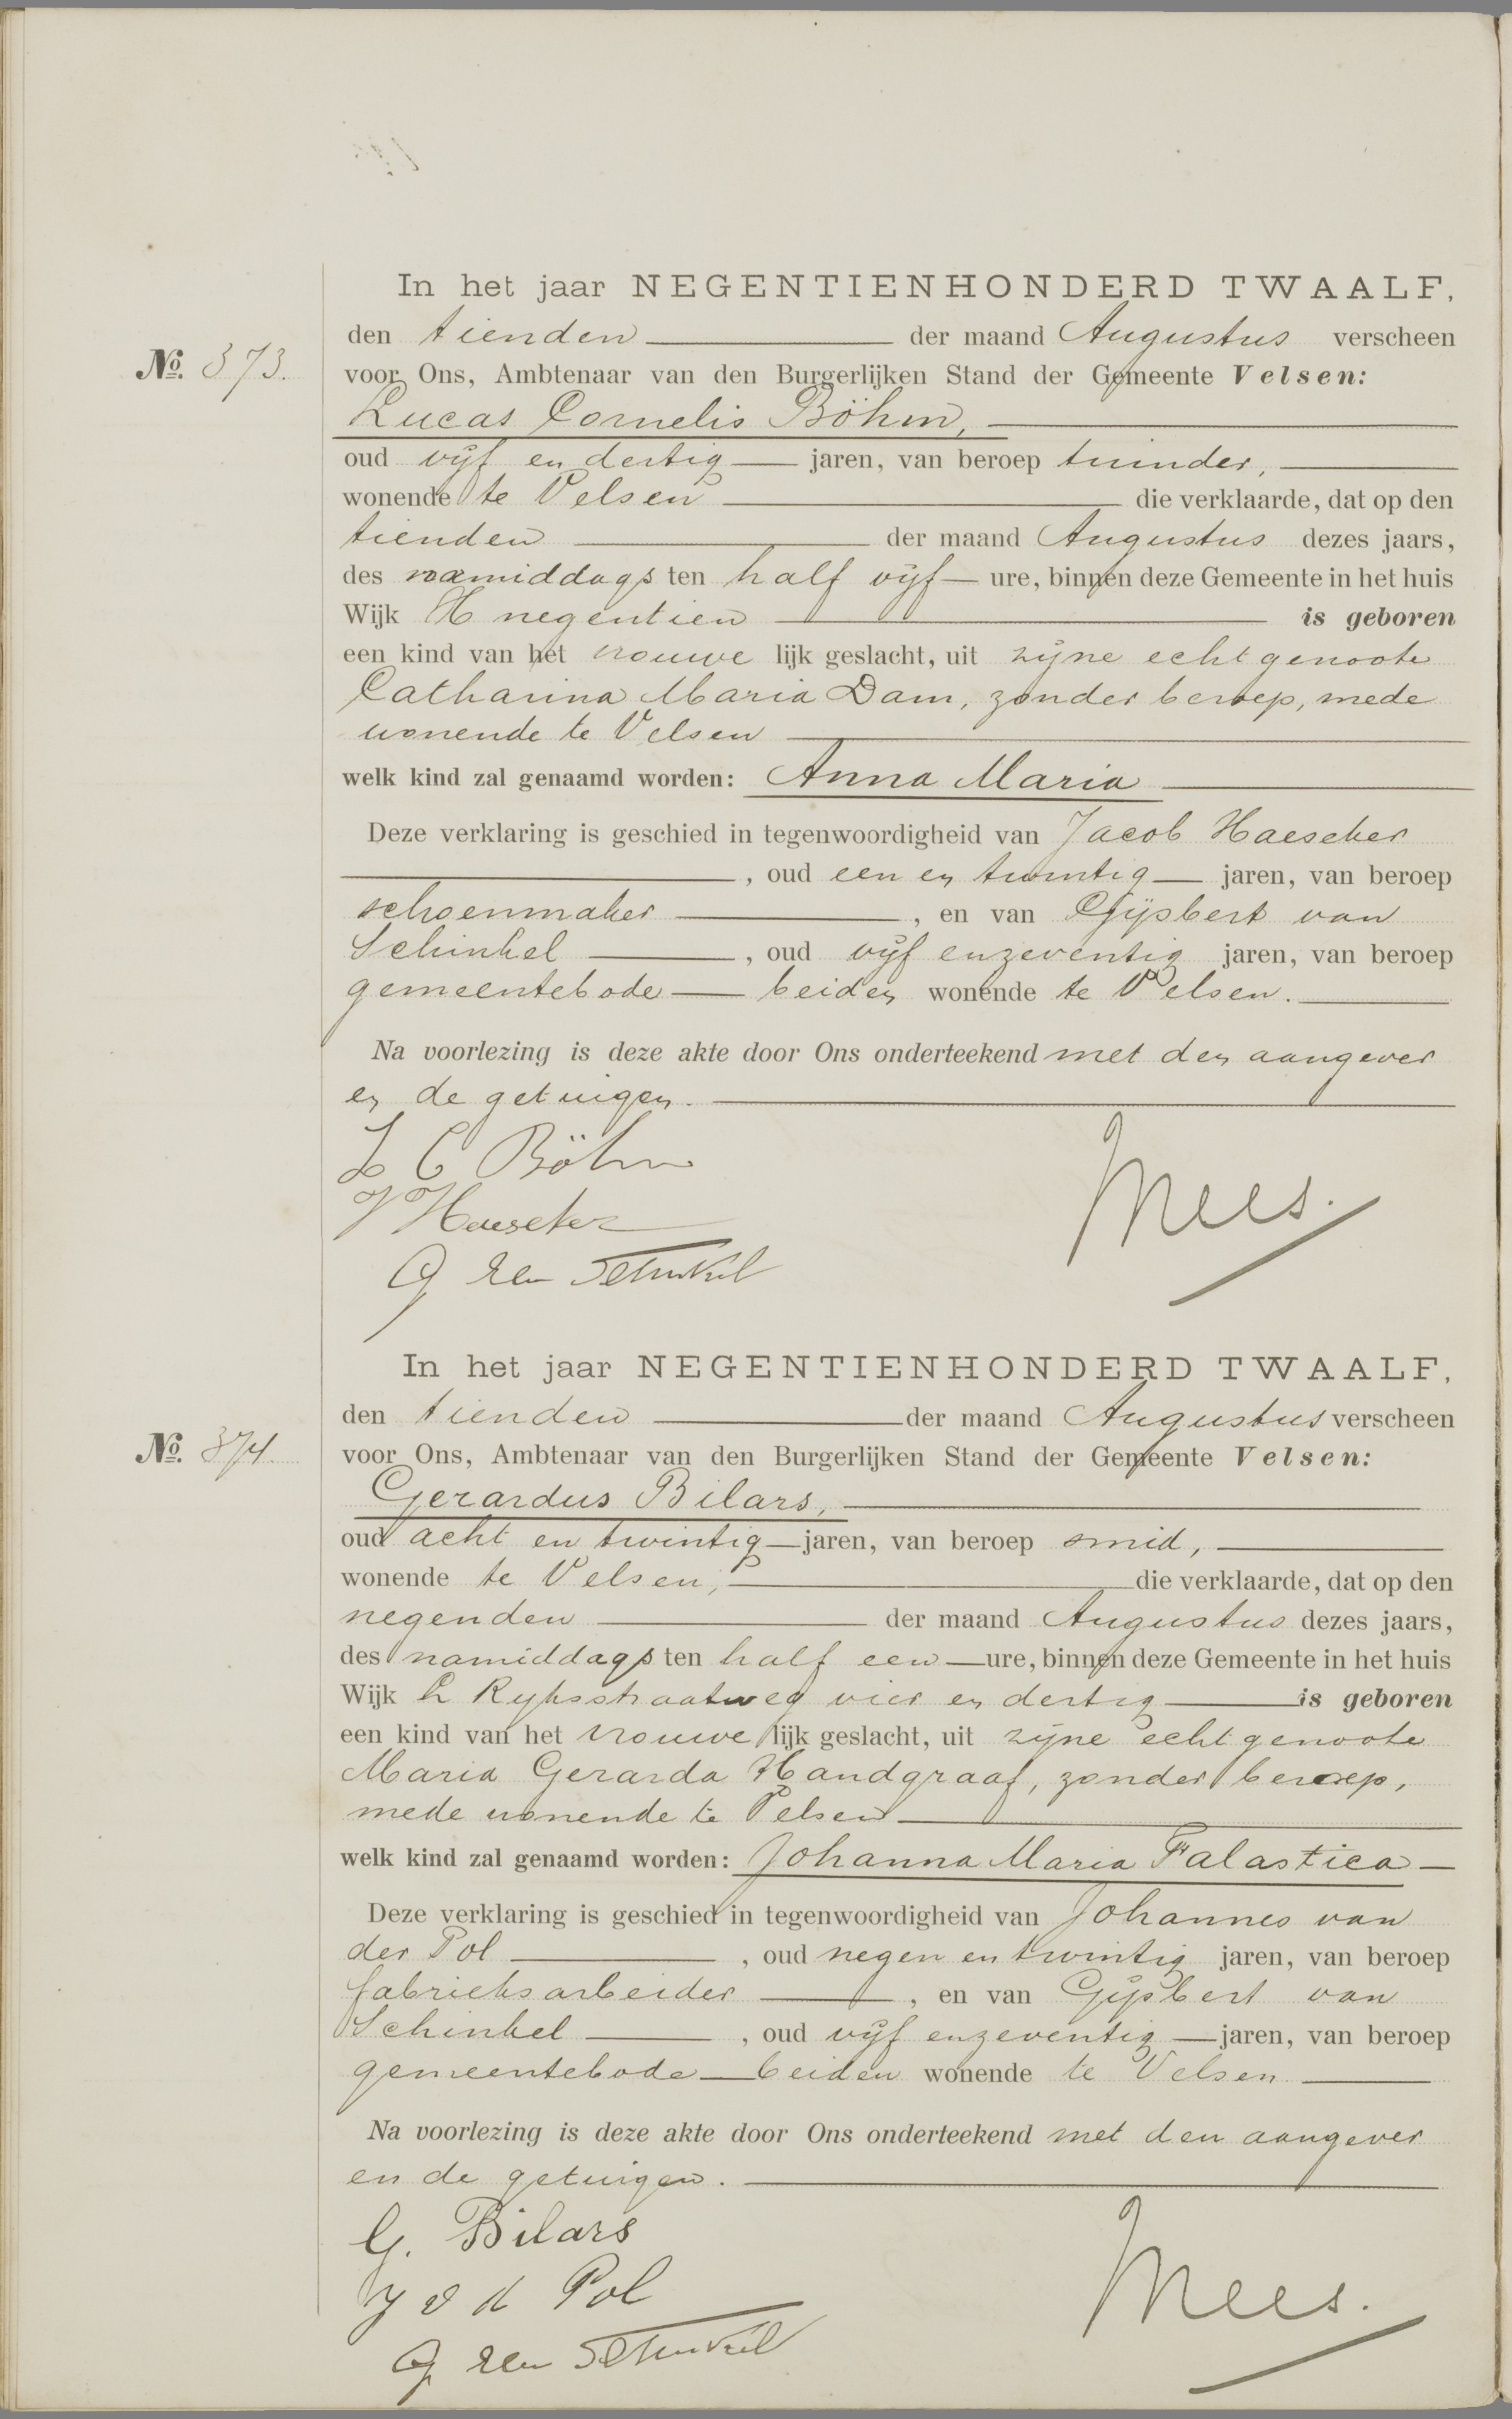 In het jaar NEGENTIENHONDERD TWAALF,
den tienden der maand Augustus verscheen
No. 373.
voor Ons, Ambtenaar van den Burgerlijken Stand der Gemeente Velsen:
Lucas Cornelis Böhm,
oud vijf en dertig jaren, van beroep tuinder,
wonende te Velsen die verklaarde, dat op den
tienden der maand Augustus dezes jaars,
des namiddags ten half vijf ure, binnen deze Gemeente in het huis
Wijk H negentien is geboren
een kind van het vrouwe lijk geslacht, uit zijne echtgenoote
Catharina Maria Dam, zonder beroep, mede
wonende te Velsen
welk kind zal genaamd worden: Anna Maria
Deze verklaring is geschied in tegenwoordigheid van Jacob Haeseker
, oud een en twintig jaren, van beroep
schoenmaker , en van Gijsbert van
Schinkel , oud vijf en zeventig jaren, van beroep
gemeentebode beiden wonende te Velsen.
Na voorlezing is deze akte door Ons onderteekend met den aangever
en de getuigen.
L C Böhm
J Haeseker
G van Schinkel
Mees.
In het jaar NEGENTIENHONDERD TWAALF,
den tienden der maand Augustus verscheen
No. 374.
voor Ons, Ambtenaar van den Burgerlijken Stand der Gemeente Velsen:
Gerardus Bilars,
oud acht en twintig jaren, van beroep smid,
wonende te Velsen, die verklaarde, dat op den
negenden der maand Augustus dezes jaars,
des namiddags ten half een ure, binnen deze Gemeente in het huis
Wijk Rijksstraatweg vier en dertig is geboren
een kind van het vrouwe lijk geslacht, uit zijne echtgenoote
Maria Gerarda Handgraaf, zonder beroep,
mede wonende te Velsen
welk kind zal genaamd worden: Johanna Maria Falastica
Deze verklaring is geschied in tegenwoordigheid van Johannes van
der Pol , oud negen en twintig jaren, van beroep
fabrieksarbeider , en van Gijsbert van
Schinkel , oud vijf en zeventig jaren, van beroep
gemeentebode beiden wonende te Velsen
Na voorlezing is deze akte door Ons onderteekend met den aangever
en de getuigen.
G. Bilars
J v d Pol
G van Schinkel
Mees.